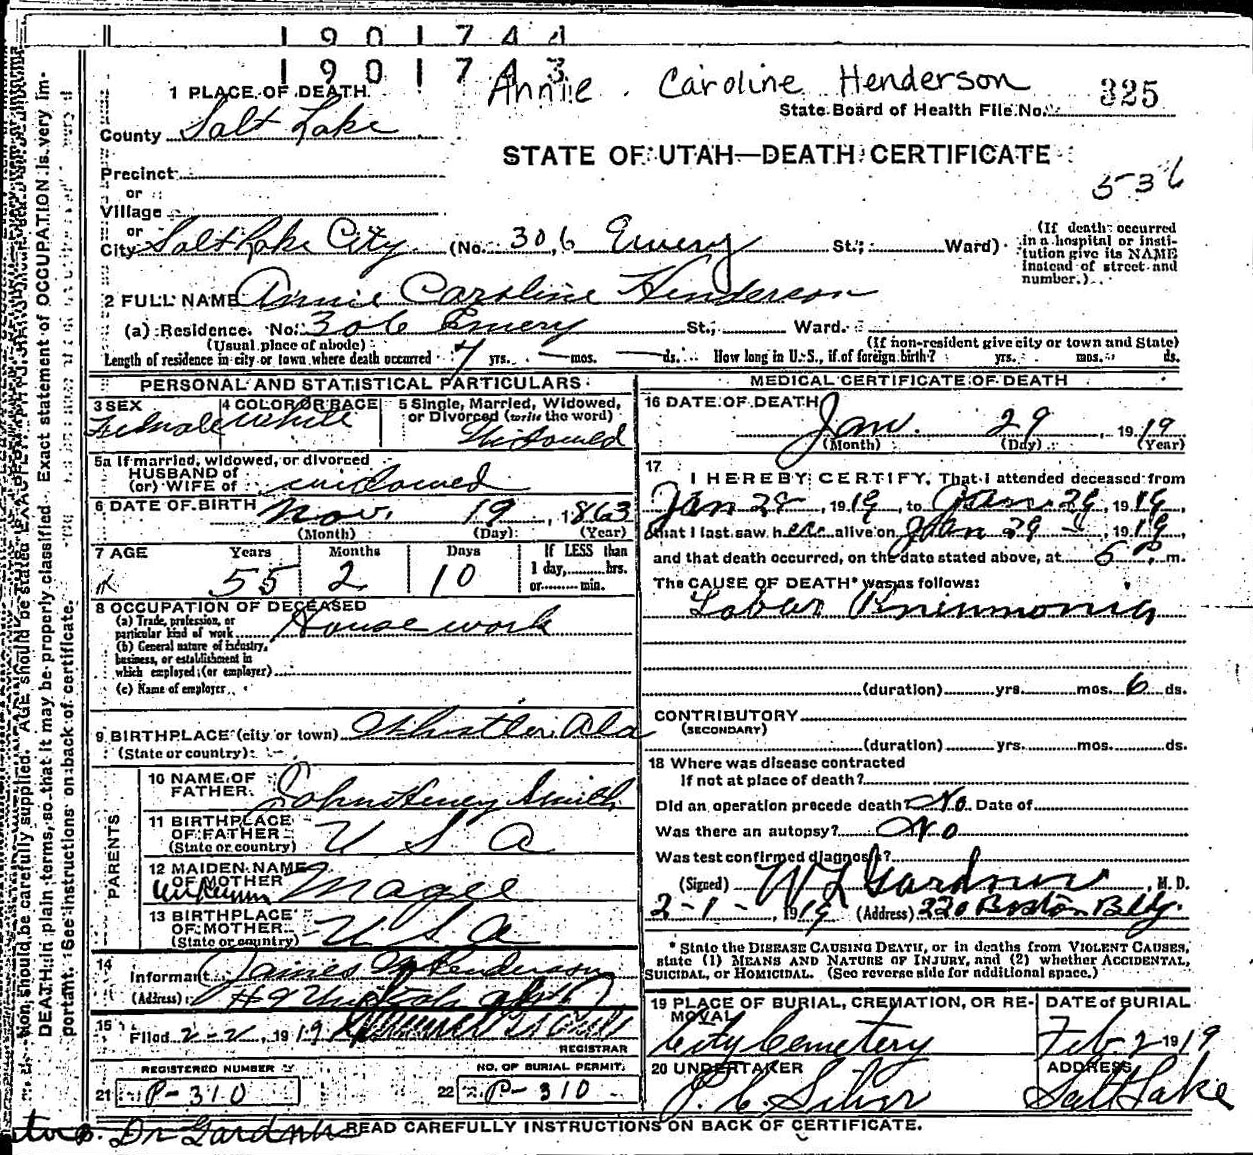 1901744
1901743
Annie Caroline Henderson
325
1 PLACE OF DEATH
State Board of Health File No.
County Salt Lake
STATE OF UTAH—DEATH CERTIFICATE
Precinct
536
or
Village
or
City Salt Lake City (No. 306 Emery St.; Ward)
(If death occurred in a hospital or institution give its NAME instead of street and number.)
2 FULL NAME Annie Caroline Henderson
(a) Residence. No. 306 Emery St.; Ward.
(Usual place of abode) (If non-resident give city or town and State)
Length of residence in city or town where death occurred 7 yrs. — mos. — ds. How long in U. S., if of foreign birth? yrs. mos. ds.
PERSONAL AND STATISTICAL PARTICULARS
3 SEX Female
4 COLOR OR RACE White
5 Single, Married, Widowed, or Divorced (write the word)
Widowed
5a If married, widowed, or divorced
HUSBAND of
(or) WIFE of widowed
6 DATE OF BIRTH Nov. 19, 1863
(Month) (Day) (Year)
7 AGE Years Months Days If LESS than
55 2 10 1 day, hrs.
or min.
8 OCCUPATION OF DECEASED
(a) Trade, profession, or
particular kind of work Housework
(b) General nature of industry,
business, or establishment in
which employed (or employer)
(c) Name of employer
9 BIRTHPLACE (city or town) Whistler, Ala
(State or country)
PARENTS
10 NAME OF
FATHER John Henry Smith
11 BIRTHPLACE
OF FATHER
(State or country) U S A
12 MAIDEN NAME
OF MOTHER Magee
13 BIRTHPLACE
OF MOTHER
(State or country) U S A
14
Informant James Henderson
(Address)
15
Filed 2-2, 1919
REGISTRAR
REGISTERED NUMBER NO. OF BURIAL PERMIT.
21 P-310 22 P-310
MEDICAL CERTIFICATE OF DEATH
16 DATE OF DEATH
Jan. 29, 1919
(Month) (Day) (Year)
17
I HEREBY CERTIFY, That I attended deceased from
Jan 28, 1919, to Jan. 29, 1919,
that I last saw her alive on Jan 29, 1919,
and that death occurred, on the date stated above, at 5 P. m.
The CAUSE OF DEATH* was as follows:
Lobar Pneumonia
(duration) yrs. mos. 6 ds.
CONTRIBUTORY
(SECONDARY)
(duration) yrs. mos. ds.
18 Where was disease contracted
If not at place of death?
Did an operation precede death? No. Date of
Was there an autopsy? No
Was test confirmed diagnosis?
(Signed) W L Gardner, M. D.
2-1-, 1919 (Address) 220 Boston Bldg.
* State the DISEASE CAUSING DEATH, or in deaths from VIOLENT CAUSES,
state (1) MEANS AND NATURE OF INJURY, and (2) whether ACCIDENTAL,
SUICIDAL, OR HOMICIDAL. (See reverse side for additional space.)
19 PLACE OF BURIAL, CREMATION, OR REMOVAL
City Cemetery
DATE of BURIAL
Feb. 2 1919
20 UNDERTAKER
ADDRESS
Salt Lake
Dr Gardner
READ CAREFULLY INSTRUCTIONS ON BACK OF CERTIFICATE.
tion should be carefully supplied. AGE should be stated EXACTLY. PHYSICIANS should state CAUSE OF
DEATH in plain terms, so that it may be properly classified. Exact statement of OCCUPATION is very im-
portant. See instructions on back of certificate.